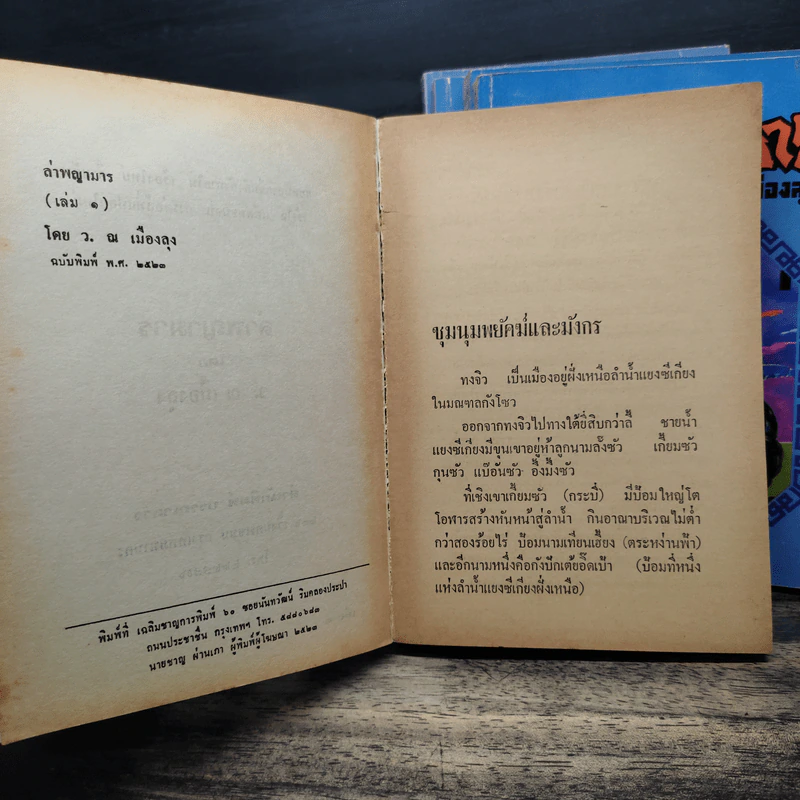 ล่าพญามาร
(เล่ม ๑)
โดย ว. ณ เมืองลุง
ฉบับพิมพ์ พ.ศ. ๒๕๒๓
พิมพ์ที่ เฉลิมชาญการพิมพ์ ๖๐ ซอยนันทวัฒน์ ริมคลองประปา
ถนนประชาชื่น กรุงเทพฯ โทร. ๕๘๘๐๖๘๓
นายชาญ ผ่านเภา ผู้พิมพ์ผู้โฆษณา ๒๕๒๓
ชุมนุมพยัคฆ์และมังกร
ทงจิว เป็นเมืองอยู่ฝั่งเหนือลำน้ำแยงซีเกียง
ในมณฑลกังโซว
ออกจากทงจิวไปทางใต้ยี่สิบกว่าลี้ ชายน้ำ
แยงซีเกียงมีขุนเขาอยู่ห้าลูกนามลั้งซัว เกี้ยมซัว
กุนซัว แบ๊อันซัว อึ้งมึ้งซัว
ที่เชิงเขาเกี้ยมซัว (กระบี่) มีป้อมใหญ่โต
โอฬารสร้างหันหน้าสู่ลำน้ำ กินอาณาบริเวณไม่ต่ำ
กว่าสองร้อยไร่ ป้อมนามเทียนเฮี้ยง (ตระหง่านฟ้า)
และอีกนามหนึ่งคือกังปักเต้ยอิ๊ดเป้า (ป้อมที่หนึ่ง
แห่งลำน้ำแยงซีเกียงฝั่งเหนือ)